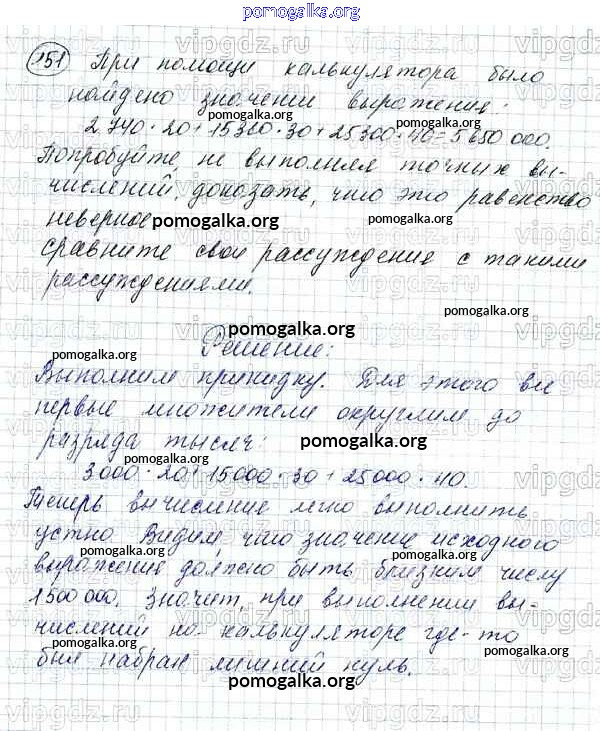 pomogalka.org
151 При помощи калькулятора было
найдено значении выражения:
2 740 · 20 + 15 360 · 30 + 25 300 · 40 = 5 650 000.
Попробуйте не выполняя точных вы-
числений, доказать, что это равенство
неверное
pomogalka.org
сравните свои рассуждения с такими
рассуждениями.
pomogalka.org
pomogalka.org
Решение:
pomogalka.org
Выполним прикидку. Для этого все
pomogalka.org
первые множители округлим до
разряда тысяч:
pomogalka.org
3000 · 20 + 15000 · 30 + 25000 · 40.
Теперь вычисление легко выполнить
pomogalka.org
устно Видим, что значение исходного
pomogalka.org
pomogalka.org
выражения должно быть близким числу
1500 000. Значит, при выполнении вы-
pomogalka.org
числений на калькуляторе где-то
pomogalka.org
был набран лишний нуль.
pomogalka.org
vipgdz.ru